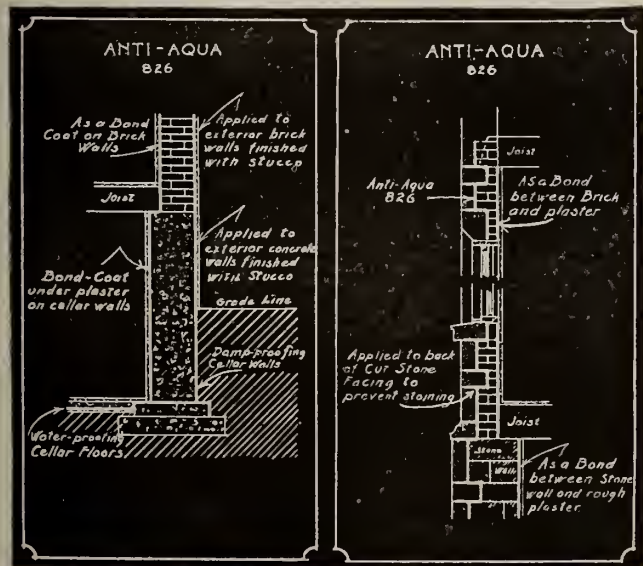 ANTI-AQUA
826
As a Bond
Coat on Brick
Walls
Applied to
exterior brick
walls finished
with stucco
Joist
Applied to
exterior concrete
walls finished
with Stucco
Bond-Coat
under plaster
on cellar walls
Grade Line
Damp-proofing
Cellar Walls
Water-proofing
Cellar Floors
ANTI-AQUA
826
Joist
Anti-Aqua
826
As a Bond
between Brick
and plaster
Applied to back
of Cut Stone
Facing to
prevent staining
Joist
Stone
Wall
As a Bond
between Stone
wall and rough
plaster